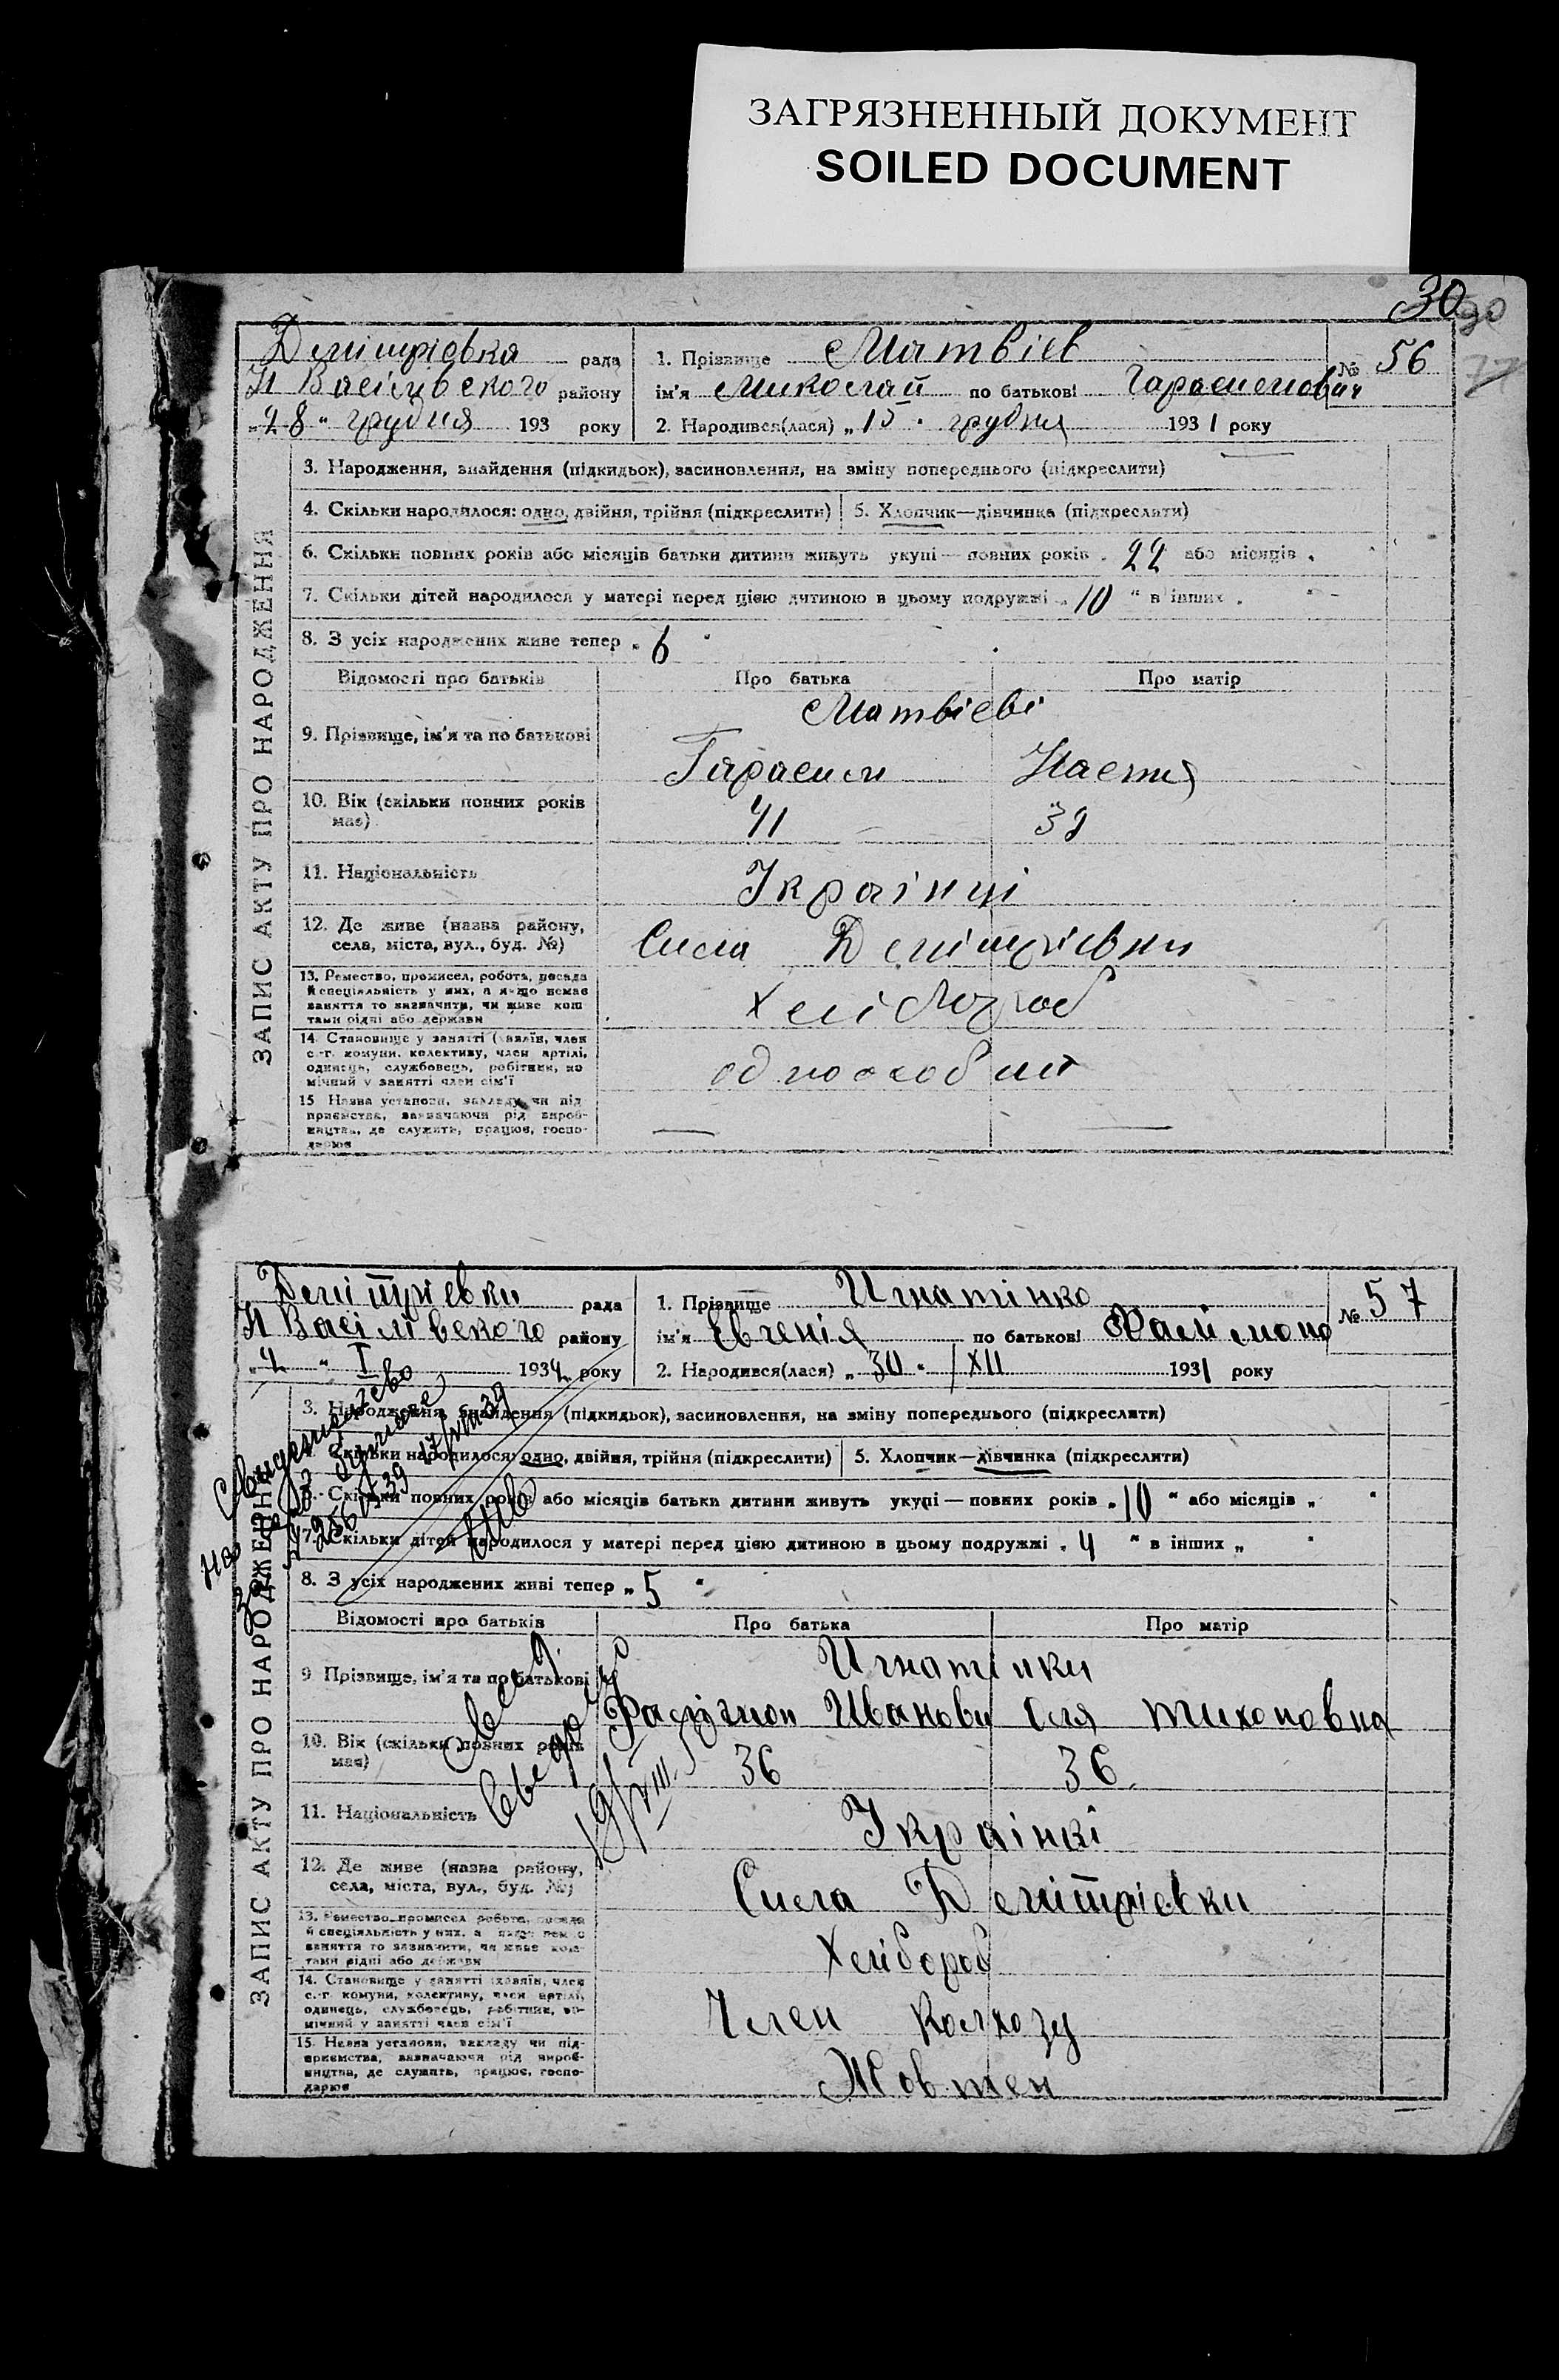 ЗАГРЯЗНЕННЫЙ ДОКУМЕНТ
SOILED DOCUMENT
30
ЗАПИС АКТУ ПРО НАРОДЖЕННЯ
Демітрієвка рада
району
"28" грудня 193 року
1. Прізвище Матвієв
№ 56
ім'я Миколай по батькові Гарасимович
2. Народився(лася) „15" грудня 1931 року
3. Народження, знайдення (підкидьок), засиновлення, на зміну попереднього (підкреслити)
4. Скільки народилося: одно, двійня, трійня (підкреслити)
5. Хлопчик—дівчинка (підкреслити)
6. Скільки повних років або місяців батьки дитини живуть укупі — повних років „22 або місяців „
7. Скільки дітей народилося у матері перед цією дитиною в цьому подружжі „10 " в інших „
8. З усіх народжених живе тепер „6 "
Відомості про батьків Про батька Про матір
9. Прізвище, ім'я та по батькові
Матвієві
Гарасим Настя
10. Вік (скільки повних років має)
41 39
11. Національність
Українці
12. Де живе (назва району,
села, міста, вул., буд. №)
Села Демітрієвки
13. Ремество, промисел, робота, посада
й спеціяльність у них, а якщо немає
заняття то зазначити, чи живе кош-
тами рідні або держави
Хлібороб
14. Становище у занятті (хазяїн, член
с.-г. комуни, колективу, член артілі,
одинець, службовець, робітник, по-
мічний у занятті член сім'ї
одноосібник
15. Назва установи, закладу чи під-
приємства, зазначаючи рід вироб-
ництва, де служить, працює, госпо-
дарює
ЗАПИС АКТУ ПРО НАРОДЖЕННЯ
Демітрієвки рада
Н Васілівского району
" I 193 року
1. Прізвище Игнатінко
№ 57
ім'я Евгенія по батькові Фалімоно
2. Народився(лася) „30" XII 1931 року
3. Народження, знайдення (підкидьок), засиновлення, на зміну попереднього (підкреслити)
4. Скільки народилося: одно, двійня, трійня (підкреслити)
5. Хлопчик—дівчинка (підкреслити)
6. Скільки повних років або місяців батьки дитини живуть укупі — повних років „10 " або місяців „ "
7. Скільки дітей народилося у матері перед цією дитиною в цьому подружжі „4 " в інших „ "
8. З усіх народжених живі тепер „5 "
Відомості про батьків Про батька Про матір
9 Прізвище, ім'я та по батькові
Игнатінки
Фалімон Иванови Оля Тихоновна
10. Вік (скільки повних років має)
36 36
11. Національність
Українкі
12. Де живе (назва району,
села, міста, вул., буд. №)
Села Демітрієвки
13. Ремество, промисел, робота, посада
й спеціяльність у них, а якщо немає
заняття то зазначити, чи живе кош-
тами рідні або держави
Хлібороб
14. Становище у занятті (хазяїн, член
с.-г. комуни, колективу, член артілі,
одинець, службовець, робітник, по-
мічний у занятті член сім'ї
Член Колхозу
15. Назва установи, закладу чи під-
приємства, зазначаючи рід вироб-
ництва, де служить, працює, госпо-
дарює
Жовтен